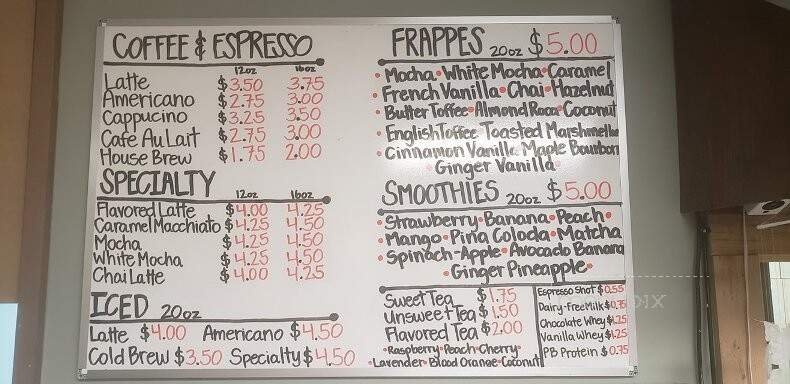 COFFEE & ESPRESSO
12oz 16oz
Latte $3.50 3.75
Americano $2.75 3.00
Cappucino $3.25 3.50
Cafe Au Lait $2.75 3.00
House Brew $1.75 2.00
SPECIALTY
12oz 16oz
Flavored Latte $4.00 4.25
Caramel Macchiato $4.25 4.50
Mocha $4.25 4.50
White Mocha $4.25 4.50
Chai Latte $4.00 4.25
ICED 20oz
Latte $4.00 Americano $4.50
Cold Brew $3.50 Specialty $4.50
FRAPPES 20oz $5.00
• Mocha • White Mocha • Caramel
• French Vanilla • Chai • Hazelnut
• Butter Toffee • Almond Roca • Coconut
• English Toffee • Toasted Marshmellow
• Cinnamon Vanilla • Maple Bourbon
• Ginger Vanilla •
SMOOTHIES 20oz $5.00
• Strawberry-Banana • Peach •
• Mango • Pina Coloda • Matcha
• Spinach-Apple • Avocado Banana
• Ginger Pineapple •
Sweet Tea $1.75
Unsweet Tea $1.50
Flavored Tea $2.00
• Raspberry • Peach • Cherry •
• Lavender • Blood Orange • Coconut
Espresso Shot $0.55
Dairy-Free Milk $0.75
Chocolate Whey $1.25
Vanilla Whey $1.25
PB Protein $0.75